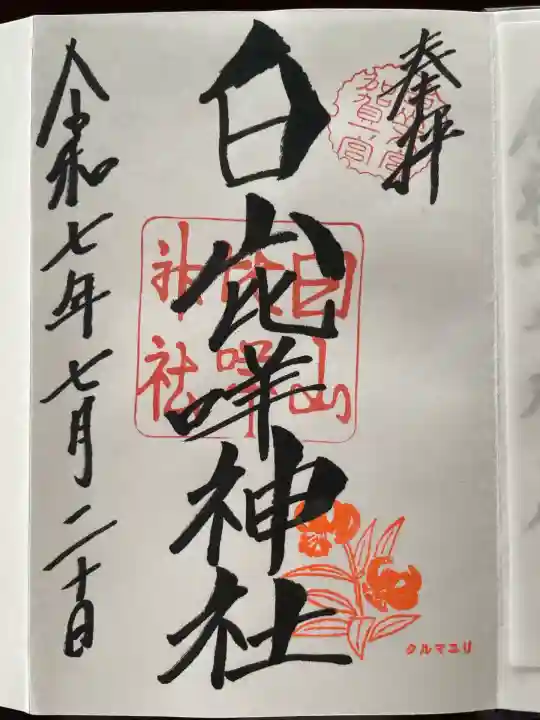 奉拝
白山比咩神社
白山比咩神社
令和七年七月二十日
クルマユリ